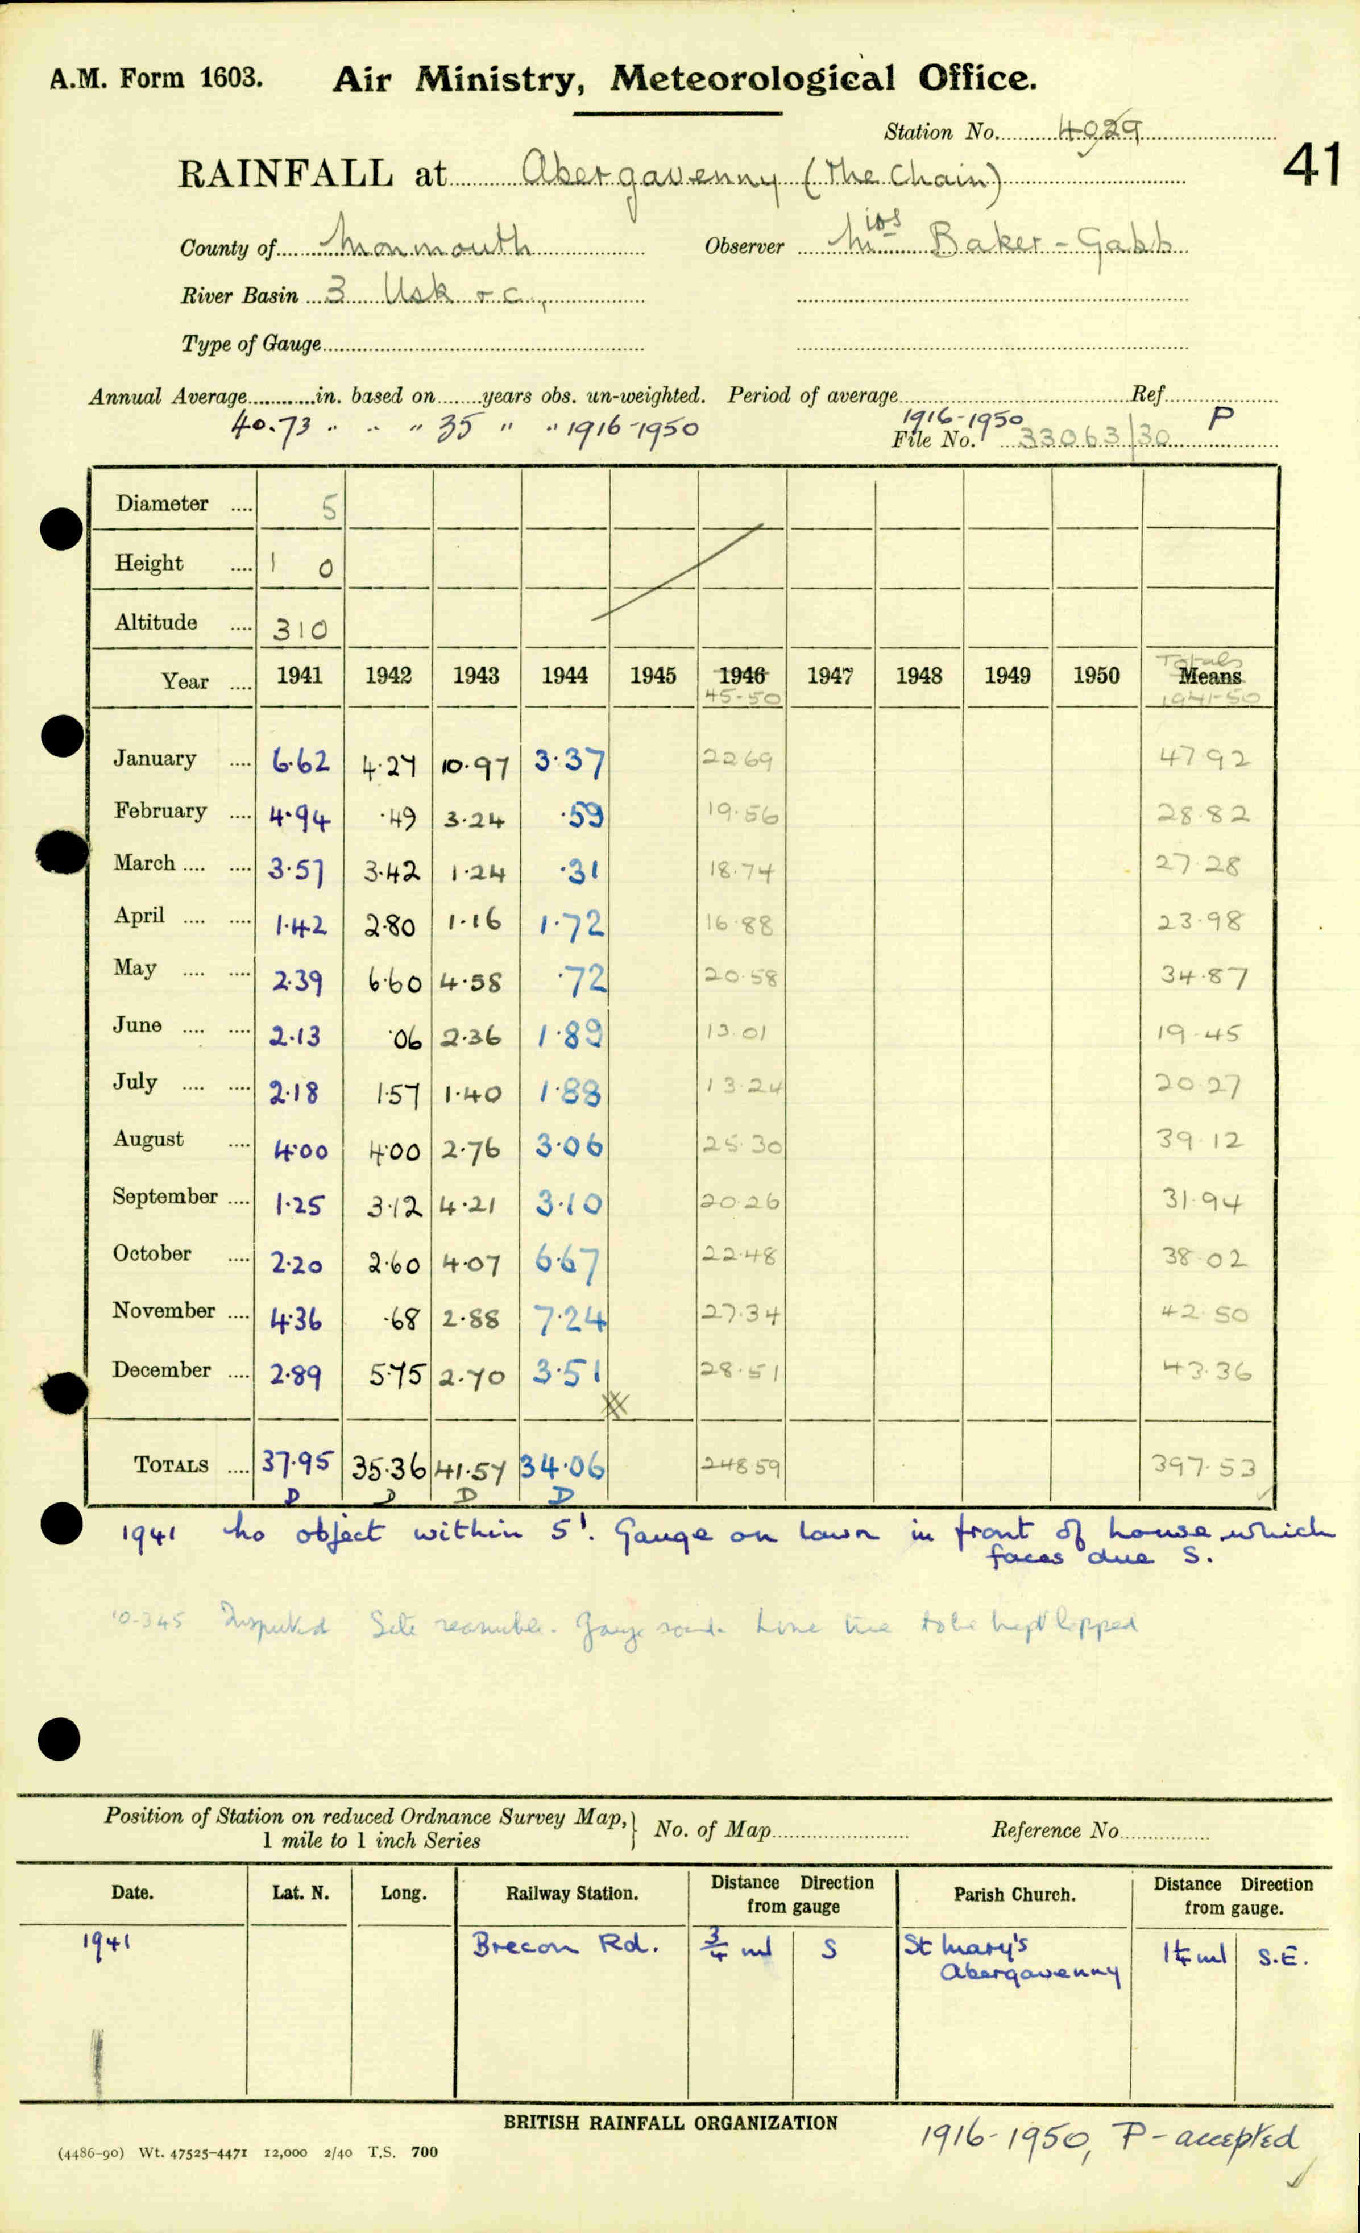 A.M. Form 1603. Air Ministry, Meteorological Office.
Station No. 4029
41
RAINFALL at Abergavenny (The Chain)
County of Monmouth Observer Miss Baker-Gabb
River Basin 3 Usk &c.,
Type of Gauge
Annual Average in. based on years obs. un-weighted. Period of average Ref.
40.73 " " " 35 " " 1916-1950 1916-1950 P
File No. 33063/30
Diameter .... 5
Height .... 1 0
Altitude .... 310
Year .... 1941 1942 1943 1944 1945 1946 1947 1948 1949 1950 Means
45-50 Totals 1941-50
January .... 6.62 4.27 10.97 3.37 22.69 47.92
February .... 4.94 .49 3.24 .59 19.56 28.82
March .... .... 3.57 3.42 1.24 .31 18.74 27.28
April .... .... 1.42 2.80 1.16 1.72 16.88 23.98
May .... .... 2.39 6.60 4.58 .72 20.58 34.87
June .... .... 2.13 .06 2.36 1.89 13.01 19.45
July .... .... 2.18 1.57 1.40 1.88 13.24 20.27
August .... 4.00 4.00 2.76 3.06 25.30 39.12
September .... 1.25 3.12 4.21 3.10 20.26 31.94
October .... 2.20 2.60 4.07 6.67 22.48 38.02
November .... 4.36 .68 2.88 7.24 27.34 42.50
December .... 2.89 5.75 2.70 3.51 28.51 43.36
TOTALS .... 37.95 35.36 41.57 34.06 248.59 397.53
D D D D
1941 No object within 5'. Gauge on lawn in front of house which
faces due S.
10.3.45 Inspected Site reasonable. Gauge sound. Lime tree to be kept lopped
Position of Station on reduced Ordnance Survey Map, 1 mile to 1 inch Series } No. of Map Reference No
Date. Lat. N. Long. Railway Station. Distance Direction from gauge Parish Church. Distance Direction from gauge.
1941 Brecon Rd. 3/4 ml S St Mary's Abergavenny 1 1/4 ml S.E.
BRITISH RAINFALL ORGANIZATION
1916-1950, P-accepted
(4486-90) Wt. 47525-4471 12,000 2/40 T.S. 700